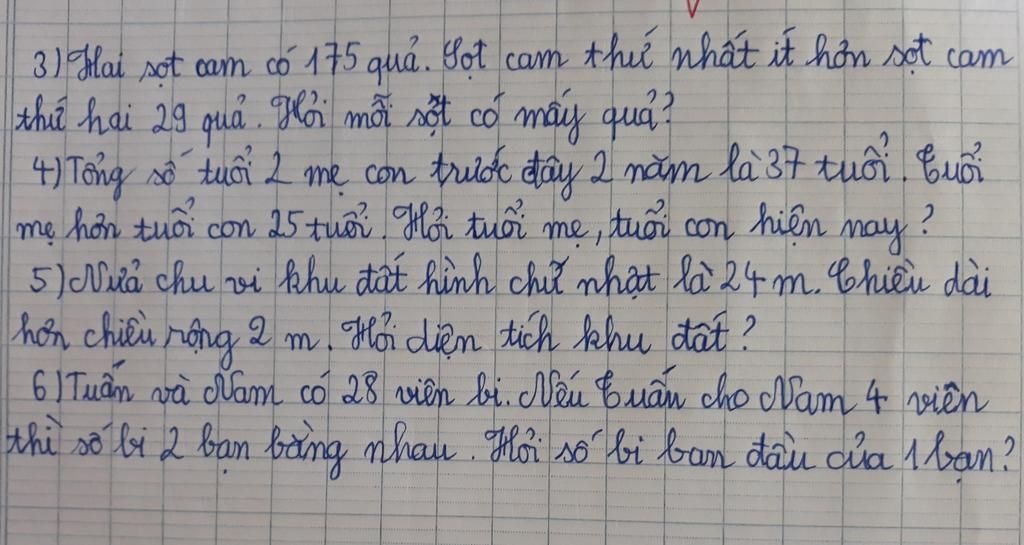 3) Hai sọt cam có 175 quả. Sọt cam thứ nhất ít hơn sọt cam
thứ hai 29 quả. Hỏi mỗi sọt có mấy quả?
4) Tổng số tuổi 2 mẹ con trước đây 2 năm là 37 tuổi. Tuổi
mẹ hơn tuổi con 25 tuổi. Hỏi tuổi mẹ, tuổi con hiện nay?
5) Nửa chu vi khu đất hình chữ nhật là 24 m. Chiều dài
hơn chiều rộng 2 m. Hỏi diện tích khu đất?
6) Tuấn và Nam có 28 viên bi. Nếu Tuấn cho Nam 4 viên
thì số bi 2 bạn bằng nhau. Hỏi số bi ban đầu của 1 bạn?